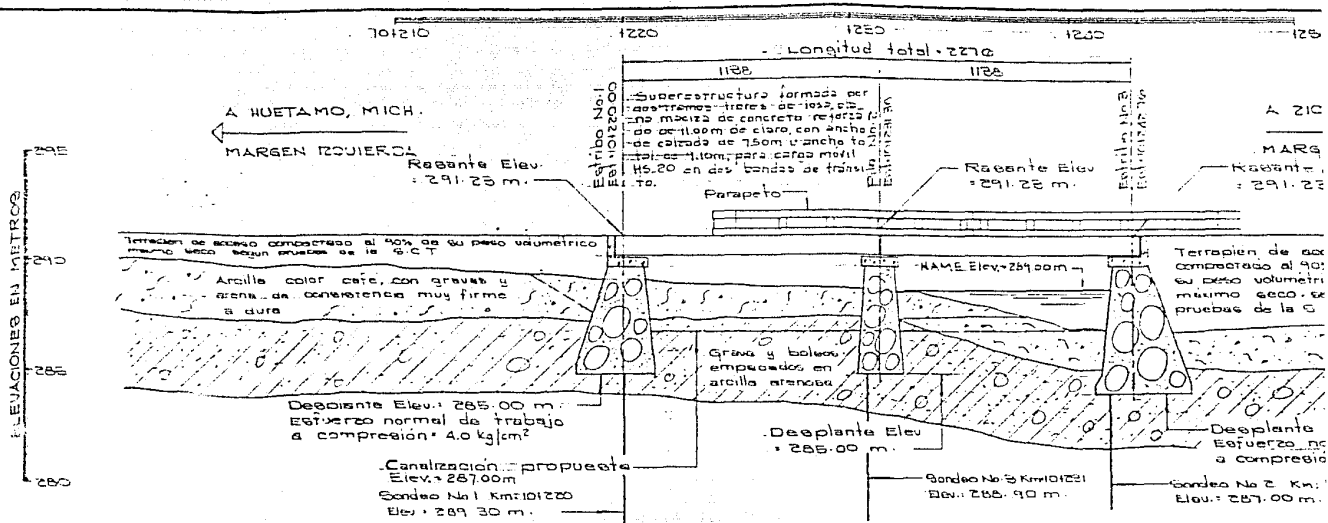 701210
1220
1230
125
Longitud total = 2276
1188
1188
A HUETAMO, MICH.
MARGEN IZQUIERDA
Estribo No. 1
Est. 101220.00
Superestructura formada por
dos tramos libres de losa pla-
na maciza de concreto reforza
do de 11.00m de claro, con ancho
de calzada de 7.50m y ancho to
tal de
para carga móvil
HS.20 en dos bandas de tránsi
to.
Pila No. 2
Estribo No. 3
A ZIC
MARG
Rasante Elev.
= 291.23 m.
Parapeto
Rasante Elev.
= 291.23 m.
Rasante
= 291.23
ELEVACIONES EN METROS
295
290
285
280
Terraplen de acceso compactado al 90% de su peso volumetrico
maximo seco segun pruebas de la S.C.T
Arcilla color café, con gravas y
arena de consistencia muy firme
a dura
NAME Elev.= 289.00m
Terraplen de acc
compactado al 90%
su peso volumetri
maximo seco. se
pruebas de la S
Grava y boleos
empacados en
arcilla arenosa
Desplante Elev.= 285.00 m.
Esfuerzo normal de trabajo
a compresión= 4.0 kg/cm²
Desplante Elev
= 285.00 m.
Desplante
Esfuerzo no
a compresió
Canalización propuesta
Elev.= 287.00m
Sondeo No 1 Km=101220
Elev = 289 30 m.
Sondeo No 3 Km=101231
Elev.= 288.90 m.
Sondeo No 2 Km;
Elev.= 287.00 m.